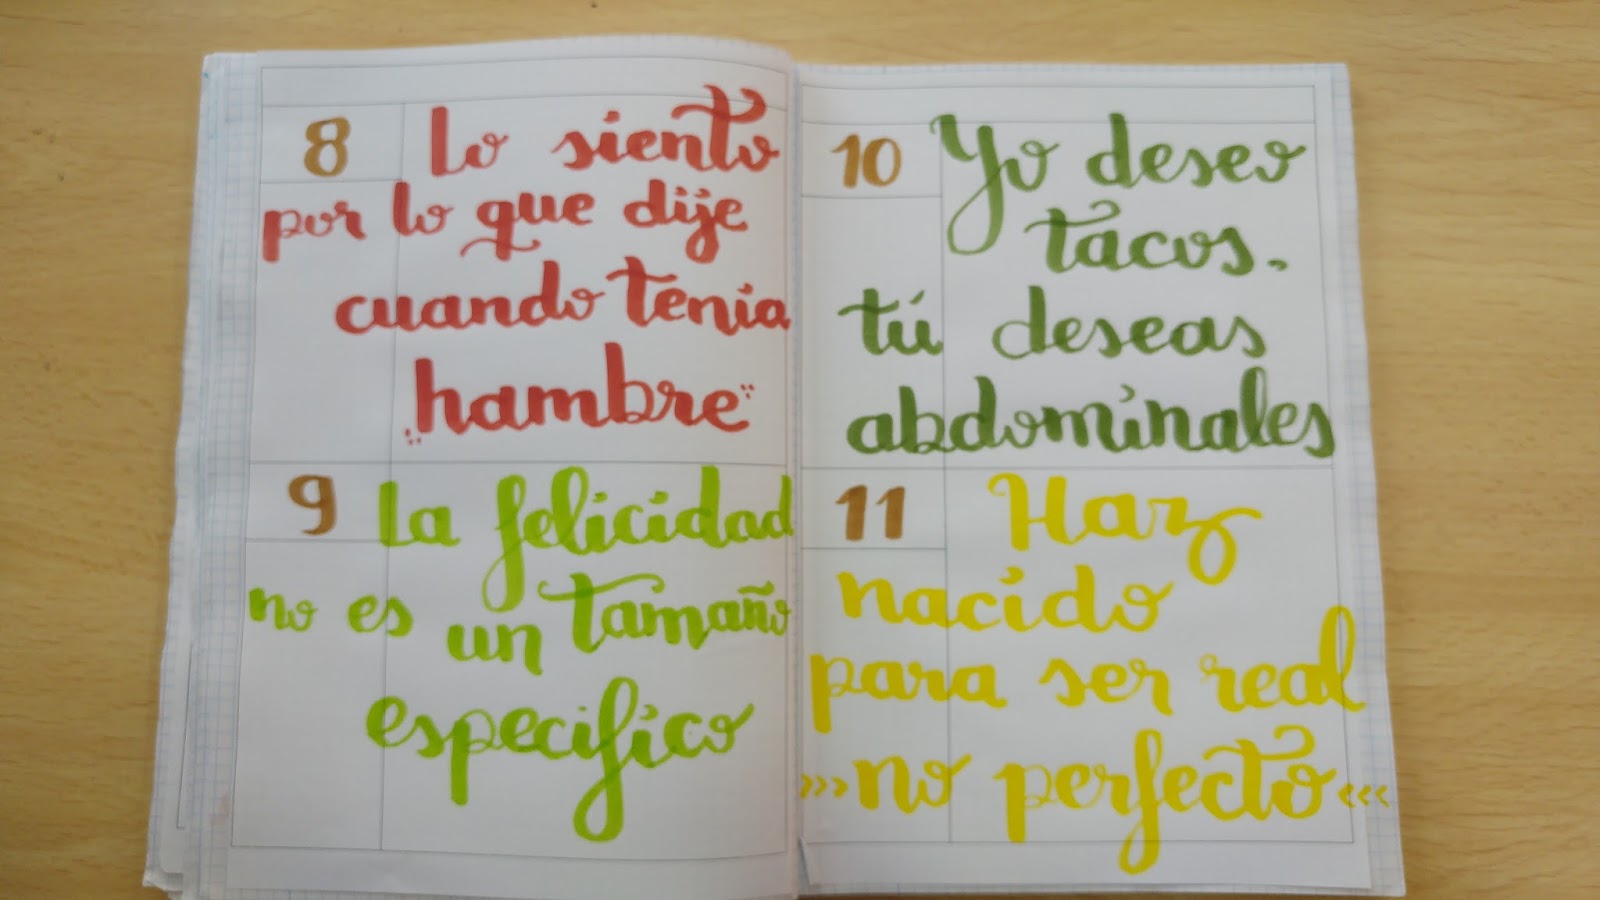 8 Lo siento
por lo que dije
cuando tenia
hambre
9 La felicidad
no es un tamaño
especifico
10 Yo deseo
tacos,
tú deseas
abdominales
11 Haz
nacido
para ser real
>>> no perfecto <<<